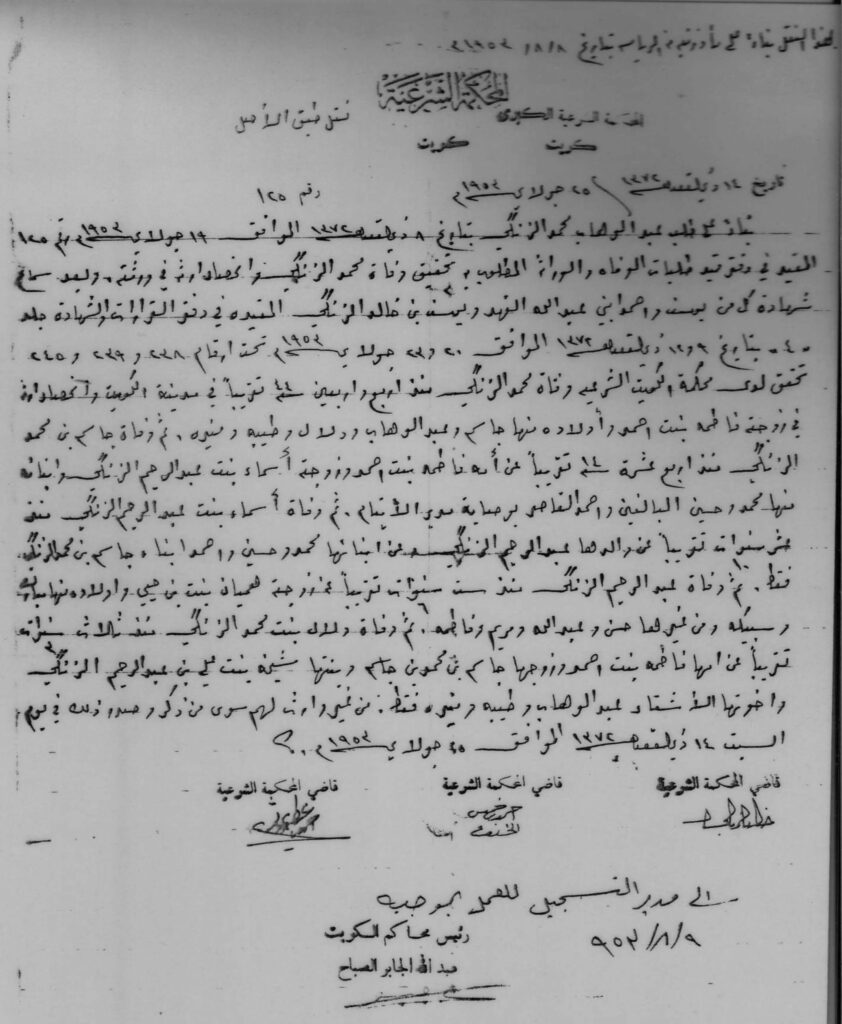 لهذا النقل بناء على مأذونية من الرياسة بتاريخ ٨/٨/١٩٥٣م
المحكمة الشرعية
المحكمة الشرعية الكبرى
نقل طبق الأصل
كويت كويت
تاريخ ١٤ ذي القعدة سنة ١٣٧٢هـ ٢٥ جولاي سنة ١٩٥٣م رقم ١٢٥
بناءً على طلب عبد الوهاب محمد الزنكي بتاريخ ٨ ذي القعدة ١٣٧٢هـ الموافق ١٩ جولاي ١٩٥٣م رقم ١٢٥
المقيد في دفتر قيد طلبات الوفاة والوراثة المطلوب به تحقيق وفاة محمد الزنكي وانحصار ارثه في ورثته. وبعد سماع
شهادة كل من يوسف واحمد ابني عبدالله الفهد ويوسف بن خالد الزنكي المقيده في دفتر القرارات والشهادة جلد
٤٠ بتاريخ ٩ و١٢ ذي القعدة ١٣٧٢هـ الموافق ٢٠ و٢٣ جولاي ١٩٥٣م تحت ارقام ٢٣٨ و ٢٣٩ و ٢٤٥
تحقق لدى محكمة الكويت الشرعيه وفاة محمد الزنكي منذ اربع واربعين سنة ٤٤ تقريباً في مدينة الكويت وانحصار ارثه
في زوجته فاطمه بنت احمد وأولاده منها جاسم وعبد الوهاب ودلال وطيبه ومنيره. ثم وفاة جاسم بن محمد
الزنكي منذ اربع عشرة سنة ١٤ تقريباً عن أمه فاطمه بنت احمد وزوجته أسماء بنت عبدالرحيم الزنكي وابنائه
منها محمد وحسين البالغين واحمد القاصر بوصاية مدير الأيتام. ثم وفاة أسماء بنت عبد الرحيم الزنكي منذ
عشر سنوات تقريباً عن والدها عبد الرحيم الزنكي وعن ابنائها محمد وحسين واحمد ابناء جاسم بن محمد الزنكي
فقط. ثم وفاة عبد الرحيم الزنكي منذ ست سنوات تقريباً عن زوجته هميان بنت بن حيي واولاده منها
وسبيكه ومن غيرها حسن وعبدالله ومريم وفاطمه. ثم وفاة دلال بنت محمد الزنكي منذ ثلاث سنوات
تقريباً عن امها فاطمه بنت احمد وزوجها جاسم بن محمد بن حاتم وبنتها شيخه بنت علي بن عبدالرحيم الزنكي
واخوتها الأشقاء عبد الوهاب وطيبه ومنيره فقط. من غير وارث لهم سوى من ذكر وصدر ذلك في يوم
السبت ١٤ ذي القعدة ١٣٧٢هـ الموافق ٢٥ جولاي ١٩٥٣م
قاضي المحكمة الشرعية قاضي المحكمة الشرعية قاضي المحكمة الشرعية
الى مدير التسجيل للعمل بموجبه
٩/٨/٩٥٣
رئيس محاكم الكويت
عبد الله الجابر الصباح